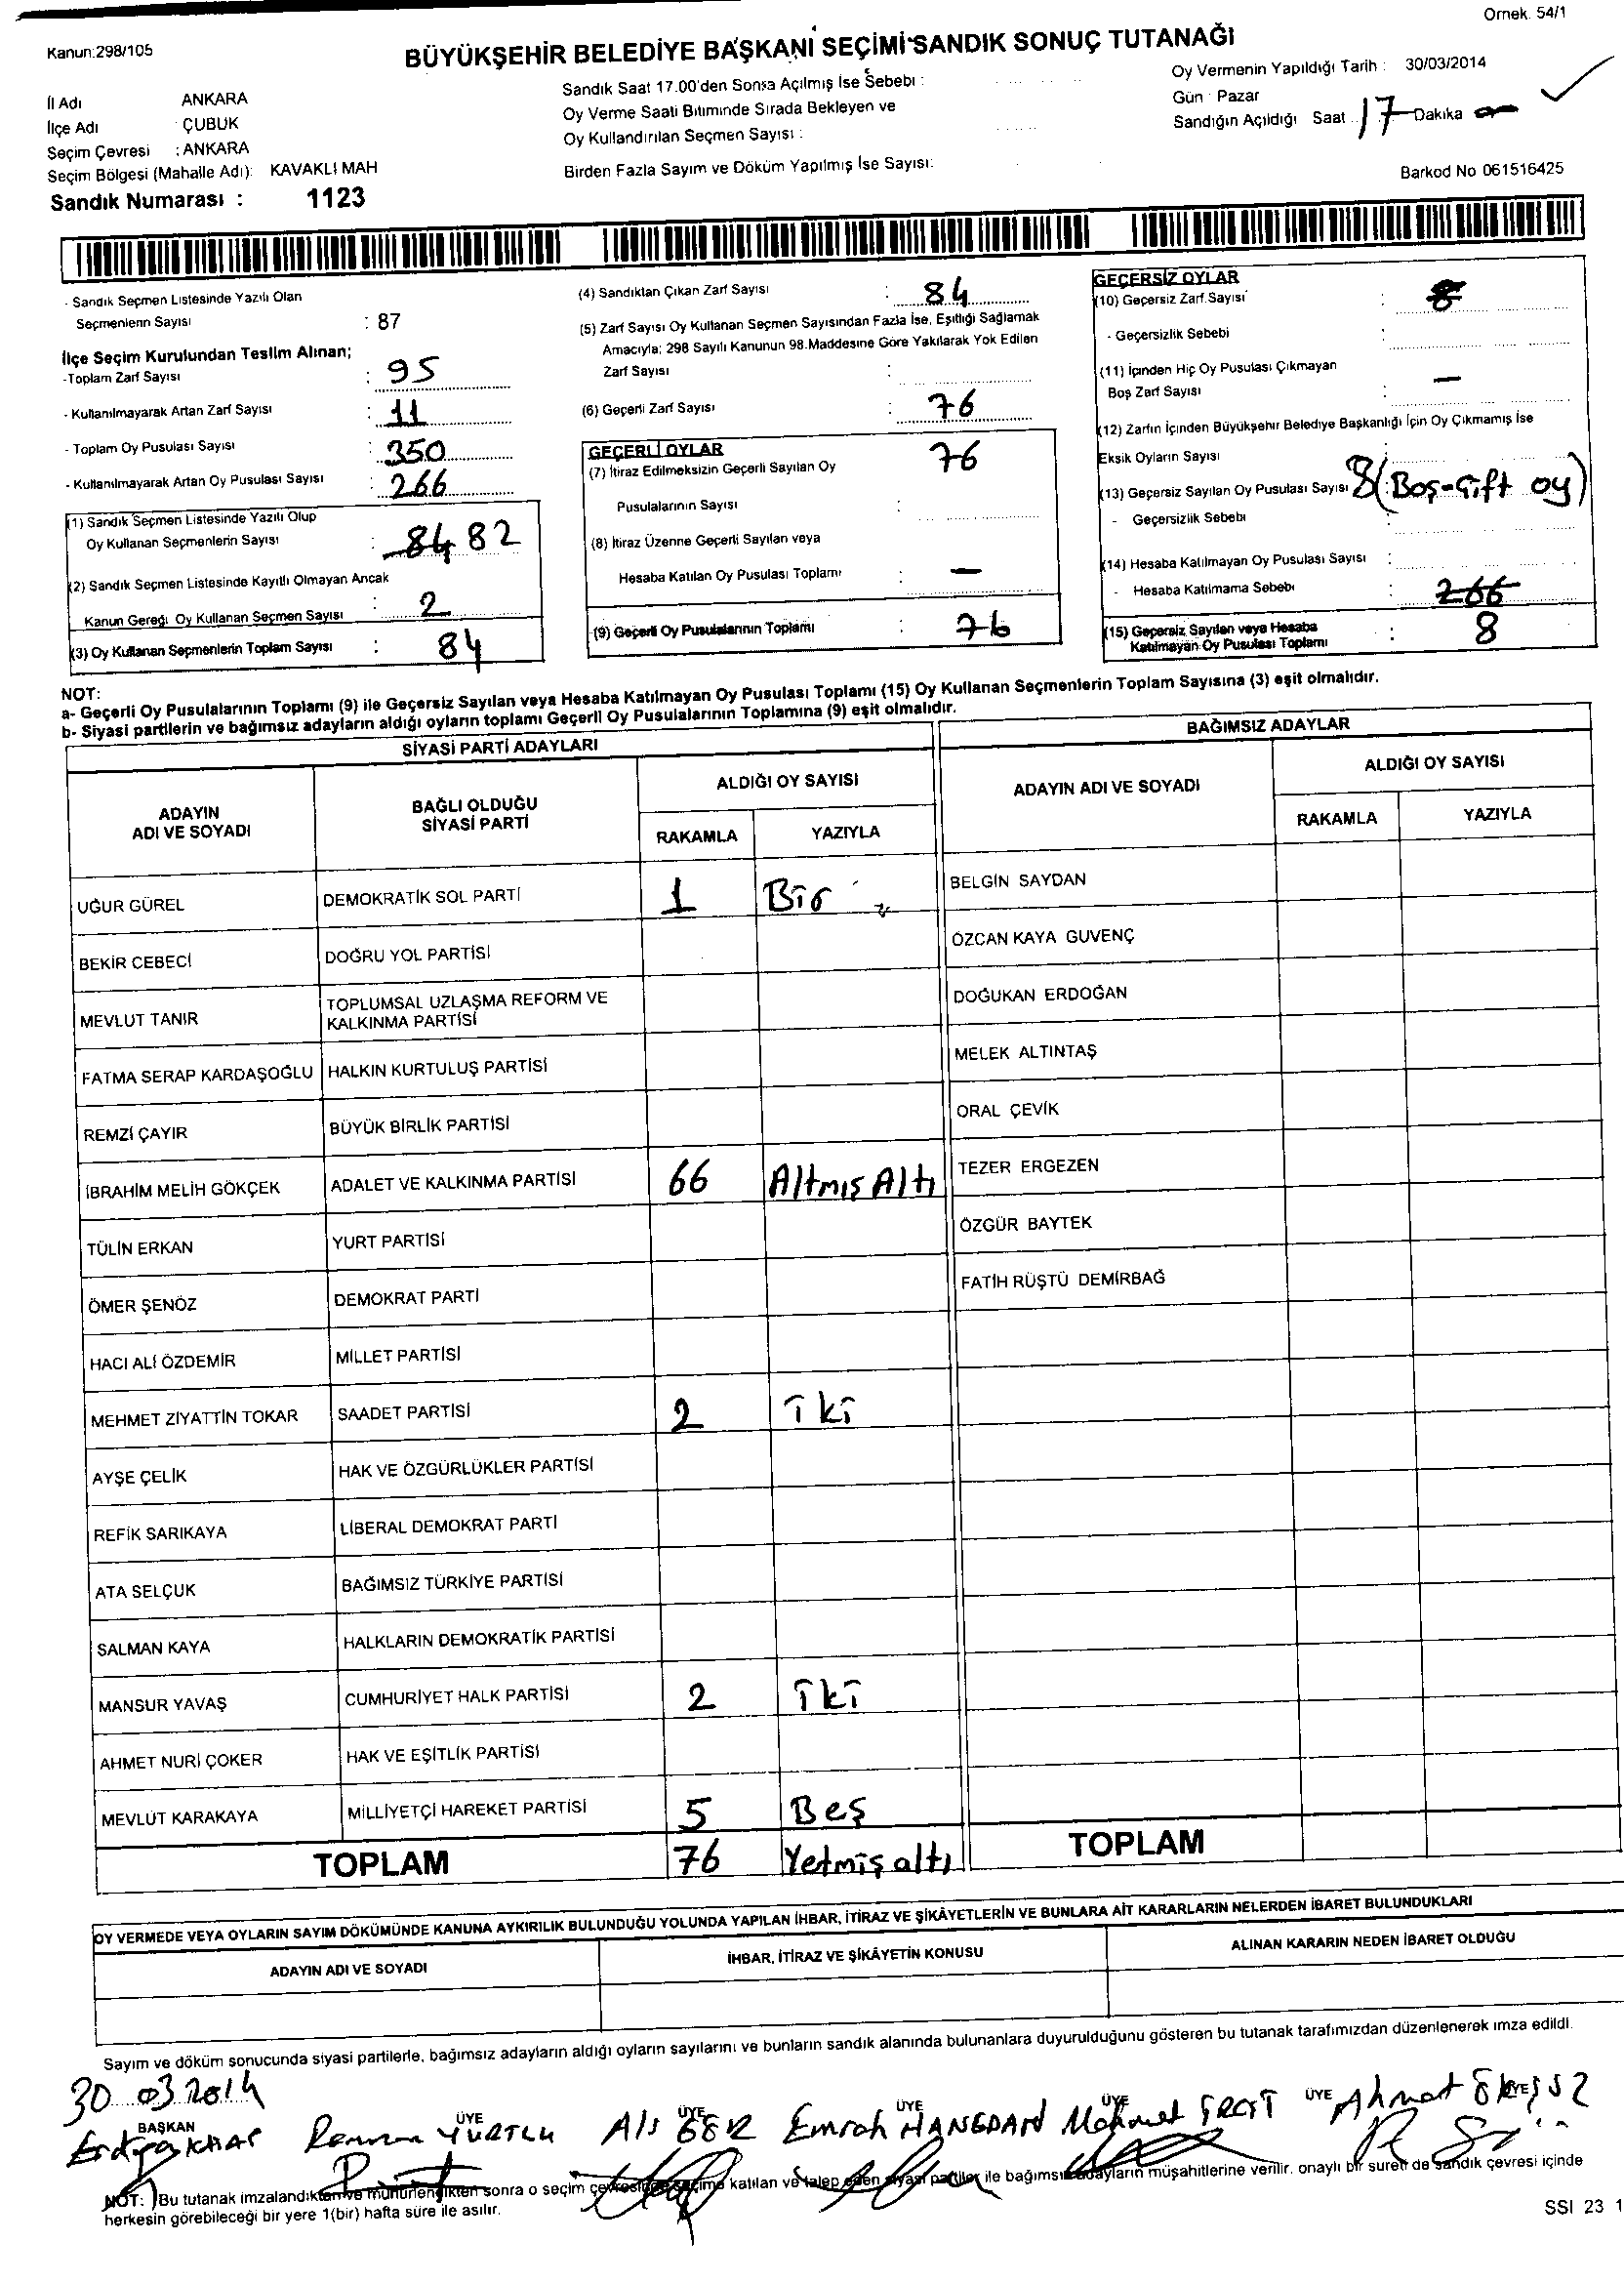 Ornek. 54/1
Kanun:298/105
BÜYÜKŞEHİR BELEDİYE BAŞKANI SEÇİMİ SANDIK SONUÇ TUTANAĞI
İl Adı ANKARA
İlçe Adı ÇUBUK
Seçim Çevresi : ANKARA
Seçim Bölgesi (Mahalle Adı): KAVAKLI MAH
Sandık Numarası : 1123
Sandık Saat 17.00'den Sonra Açılmış İse Sebebi :
Oy Verme Saati Bitiminde Sırada Bekleyen ve
Oy Kullandırılan Seçmen Sayısı :
Birden Fazla Sayım ve Döküm Yapılmış İse Sayısı:
Oy Vermenin Yapıldığı Tarih : 30/03/2014
Gün : Pazar
Sandığın Açıldığı Saat 17 Dakika
Barkod No 061516425
- Sandık Seçmen Listesinde Yazılı Olan
Seçmenlerin Sayısı : 87
İlçe Seçim Kurulundan Teslim Alınan;
-Toplam Zarf Sayısı : 95
- Kullanılmayarak Artan Zarf Sayısı : 11
- Toplam Oy Pusulası Sayısı : 350
- Kullanılmayarak Artan Oy Pusulası Sayısı : 266
(1) Sandık Seçmen Listesinde Yazılı Olup
Oy Kullanan Seçmenlerin Sayısı : 84 82
(2) Sandık Seçmen Listesinde Kayıtlı Olmayan Ancak
Kanun Gereği Oy Kullanan Seçmen Sayısı : 2
(3) Oy Kullanan Seçmenlerin Toplam Sayısı : 84
(4) Sandıktan Çıkan Zarf Sayısı : 84
(5) Zarf Sayısı Oy Kullanan Seçmen Sayısından Fazla İse, Eşitliği Sağlamak
Amacıyla; 298 Sayılı Kanunun 98.Maddesine Göre Yakılarak Yok Edilen
Zarf Sayısı :
(6) Geçerli Zarf Sayısı : 76
GEÇERLİ OYLAR
(7) İtiraz Edilmeksizin Geçerli Sayılan Oy 76
Pusulalarının Sayısı :
(8) İtiraz Üzerine Geçerli Sayılan veya
Hesaba Katılan Oy Pusulası Toplamı : —
(9) Geçerli Oy Pusulalarının Toplamı : 76
GEÇERSİZ OYLAR
(10) Geçersiz Zarf Sayısı : 8
- Geçersizlik Sebebi :
(11) İçinden Hiç Oy Pusulası Çıkmayan
Boş Zarf Sayısı : —
(12) Zarfın İçinden Büyükşehir Belediye Başkanlığı İçin Oy Çıkmamış İse
Eksik Oyların Sayısı
(13) Geçersiz Sayılan Oy Pusulası Sayısı : 8 (Boş-Çift oy)
- Geçersizlik Sebebi
(14) Hesaba Katılmayan Oy Pusulası Sayısı :
- Hesaba Katılmama Sebebi : 266
(15) Geçersiz Sayılan veya Hesaba
Katılmayan Oy Pusulası Toplamı : 8
NOT:
a- Geçerli Oy Pusulalarının Toplamı (9) ile Geçersiz Sayılan veya Hesaba Katılmayan Oy Pusulası Toplamı (15) Oy Kullanan Seçmenlerin Toplam Sayısına (3) eşit olmalıdır.
b- Siyasi partilerin ve bağımsız adayların aldığı oyların toplamı Geçerli Oy Pusulalarının Toplamına (9) eşit olmalıdır.
SİYASİ PARTİ ADAYLARI
ADAYIN ADI VE SOYADI BAĞLI OLDUĞU SİYASİ PARTİ ALDIĞI OY SAYISI
RAKAMLA YAZIYLA
UĞUR GÜREL DEMOKRATİK SOL PARTİ 1 Bir
BEKİR CEBECİ DOĞRU YOL PARTİSİ
MEVLUT TANIR TOPLUMSAL UZLAŞMA REFORM VE KALKINMA PARTİSİ
FATMA SERAP KARDAŞOĞLU HALKIN KURTULUŞ PARTİSİ
REMZİ ÇAYIR BÜYÜK BİRLİK PARTİSİ
İBRAHİM MELİH GÖKÇEK ADALET VE KALKINMA PARTİSİ 66 Altmış Altı
TÜLİN ERKAN YURT PARTİSİ
ÖMER ŞENÖZ DEMOKRAT PARTİ
HACI ALİ ÖZDEMİR MİLLET PARTİSİ
MEHMET ZİYATTİN TOKAR SAADET PARTİSİ 2 İki
AYŞE ÇELİK HAK VE ÖZGÜRLÜKLER PARTİSİ
REFİK SARIKAYA LİBERAL DEMOKRAT PARTİ
ATA SELÇUK BAĞIMSIZ TÜRKİYE PARTİSİ
SALMAN KAYA HALKLARIN DEMOKRATİK PARTİSİ
MANSUR YAVAŞ CUMHURİYET HALK PARTİSİ 2 İki
AHMET NURİ ÇOKER HAK VE EŞİTLİK PARTİSİ
MEVLÜT KARAKAYA MİLLİYETÇİ HAREKET PARTİSİ 5 Beş
TOPLAM 76 Yetmiş altı
BAĞIMSIZ ADAYLAR
ADAYIN ADI VE SOYADI ALDIĞI OY SAYISI
RAKAMLA YAZIYLA
BELGİN SAYDAN
ÖZCAN KAYA GÜVENÇ
DOĞUKAN ERDOĞAN
MELEK ALTINTAŞ
ORAL ÇEVİK
TEZER ERGEZEN
ÖZGÜR BAYTEK
FATİH RÜŞTÜ DEMİRBAĞ
TOPLAM
OY VERMEDE VEYA OYLARIN SAYIM DÖKÜMÜNDE KANUNA AYKIRILIK BULUNDUĞU YOLUNDA YAPILAN İHBAR, İTİRAZ VE ŞİKÂYETLERİN VE BUNLARA AİT KARARLARIN NELERDEN İBARET BULUNDUKLARI
ADAYIN ADI VE SOYADI İHBAR, İTİRAZ VE ŞİKÂYETİN KONUSU ALINAN KARARIN NEDEN İBARET OLDUĞU
Sayım ve döküm sonucunda siyasi partilerle, bağımsız adayların aldığı oyların sayılarını ve bunların sandık alanında bulunanlara duyurulduğunu gösteren bu tutanak tarafımızdan düzenlenerek imza edildi.
30 03 2014
BAŞKAN ÜYE ÜYE ÜYE ÜYE ÜYE ÜYE
Emrah HANEDAN Ahmet
NOT: Bu tutanak imzalandıktan ve mühürlendikten sonra o seçim çevresinde seçime katılan ve talep eden siyasi partiler ile bağımsız adayların müşahitlerine verilir. onaylı bir sureti de sandık çevresi içinde
herkesin görebileceği bir yere 1(bir) hafta süre ile asılır.
SSI 23 1